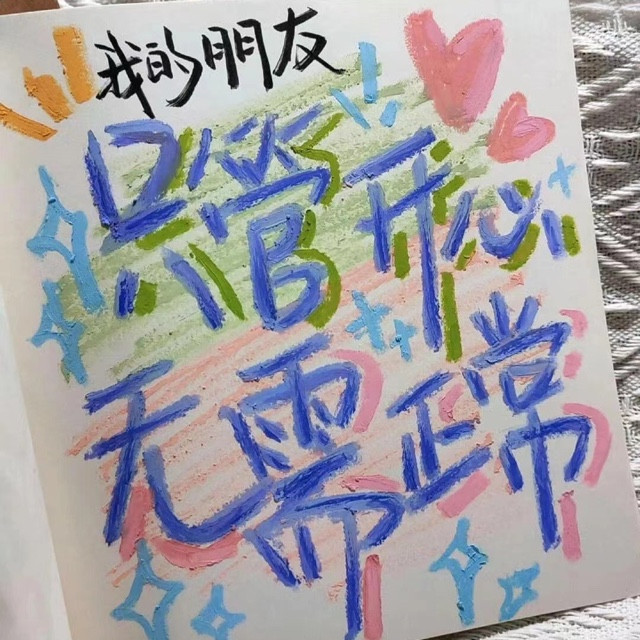 我的朋友
只管开心
无需正常